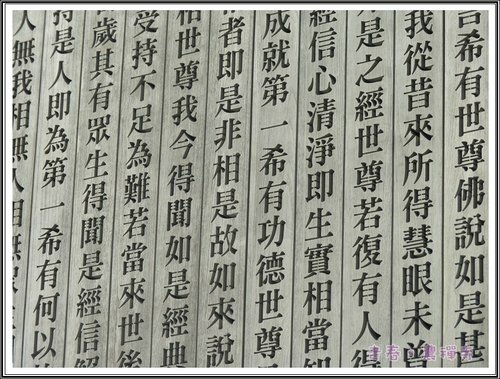 言希有世尊佛說如是甚
我從昔來所得慧眼未曾
是之經世尊若復有人得
經信心清淨即生實相當知
成就第一希有功德世尊是
者即是非相是故如來說
相世尊我今得聞如是經典
受持不足為難若當來世後
歲其有眾生得聞是經信解
持是人即為第一希有何以
人無我相無人相無眾